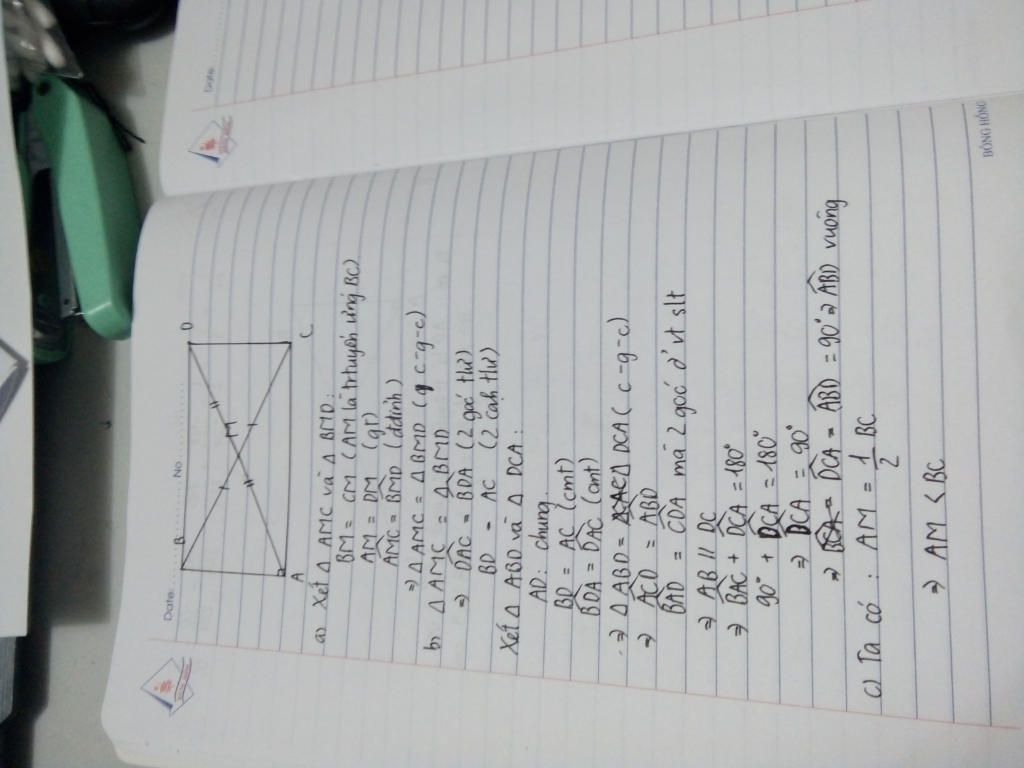 Date:
Date: No
B
D
M
A
C
a) Xét Δ AMC và Δ BMD:
BM = CM (AM là trtuyến ứng BC)
AM = DM (gt)
AMC = BMD (đđỉnh)
⇒ Δ AMC = Δ BMD (c-g-c)
b, Δ AMC = Δ BMD
⇒ DAC = BDA (2 góc tứ)
BD = AC (2 cạh tứ)
Xét Δ ABD và Δ DCA:
AD: chung
BD = AC (cmt)
BDA = DAC (cmt)
⇒ Δ ABD = Δ DCA (c-g-c)
⇒ ACD = ABD
BAD = CDA mà 2 góc ở vt slt
⇒ AB // DC
⇒ BAC + DCA = 180°
90° + DCA = 180°
⇒ DCA = 90°
⇒ DCA = ABD = 90° ⇒ ABD vuông
c) Ta có: AM = 1/2 BC
⇒ AM < BC
BÔNG HỒNG